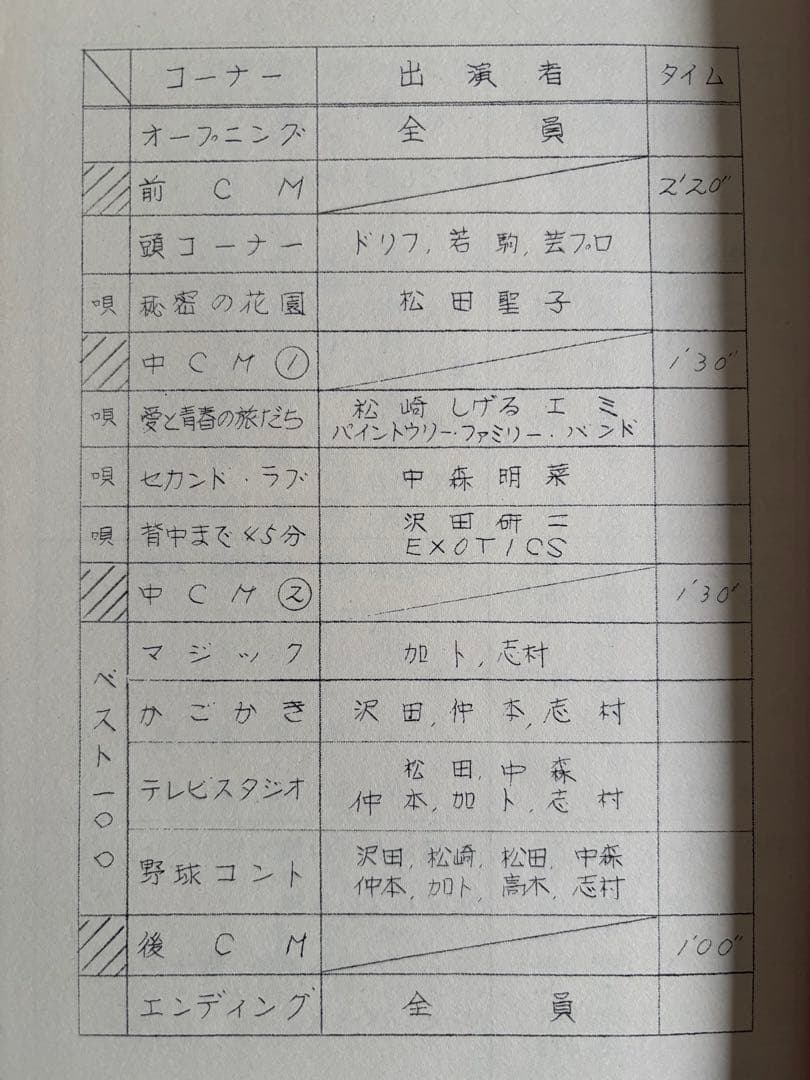 コーナー 出演者 タイム
オープニング 全員
前CM 2'20"
頭コーナー ドリフ, 若駒, 芸プロ
唄 秘密の花園 松田聖子
中CM① 1'30"
唄 愛と青春の旅だち 松崎しげる エミ
パイントウリー・ファミリー・バンド
唄 セカンド・ラブ 中森明菜
唄 背中まで45分 沢田研二
EXOTICS
中CM② 1'30"
ベスト一〇〇
マジック 加ト, 志村
かごかき 沢田, 仲本, 志村
テレビスタジオ 松田, 中森
仲本, 加ト, 志村
野球コント 沢田, 松崎, 松田, 中森
仲本, 加ト, 高木, 志村
後CM 1'00"
エンディング 全員